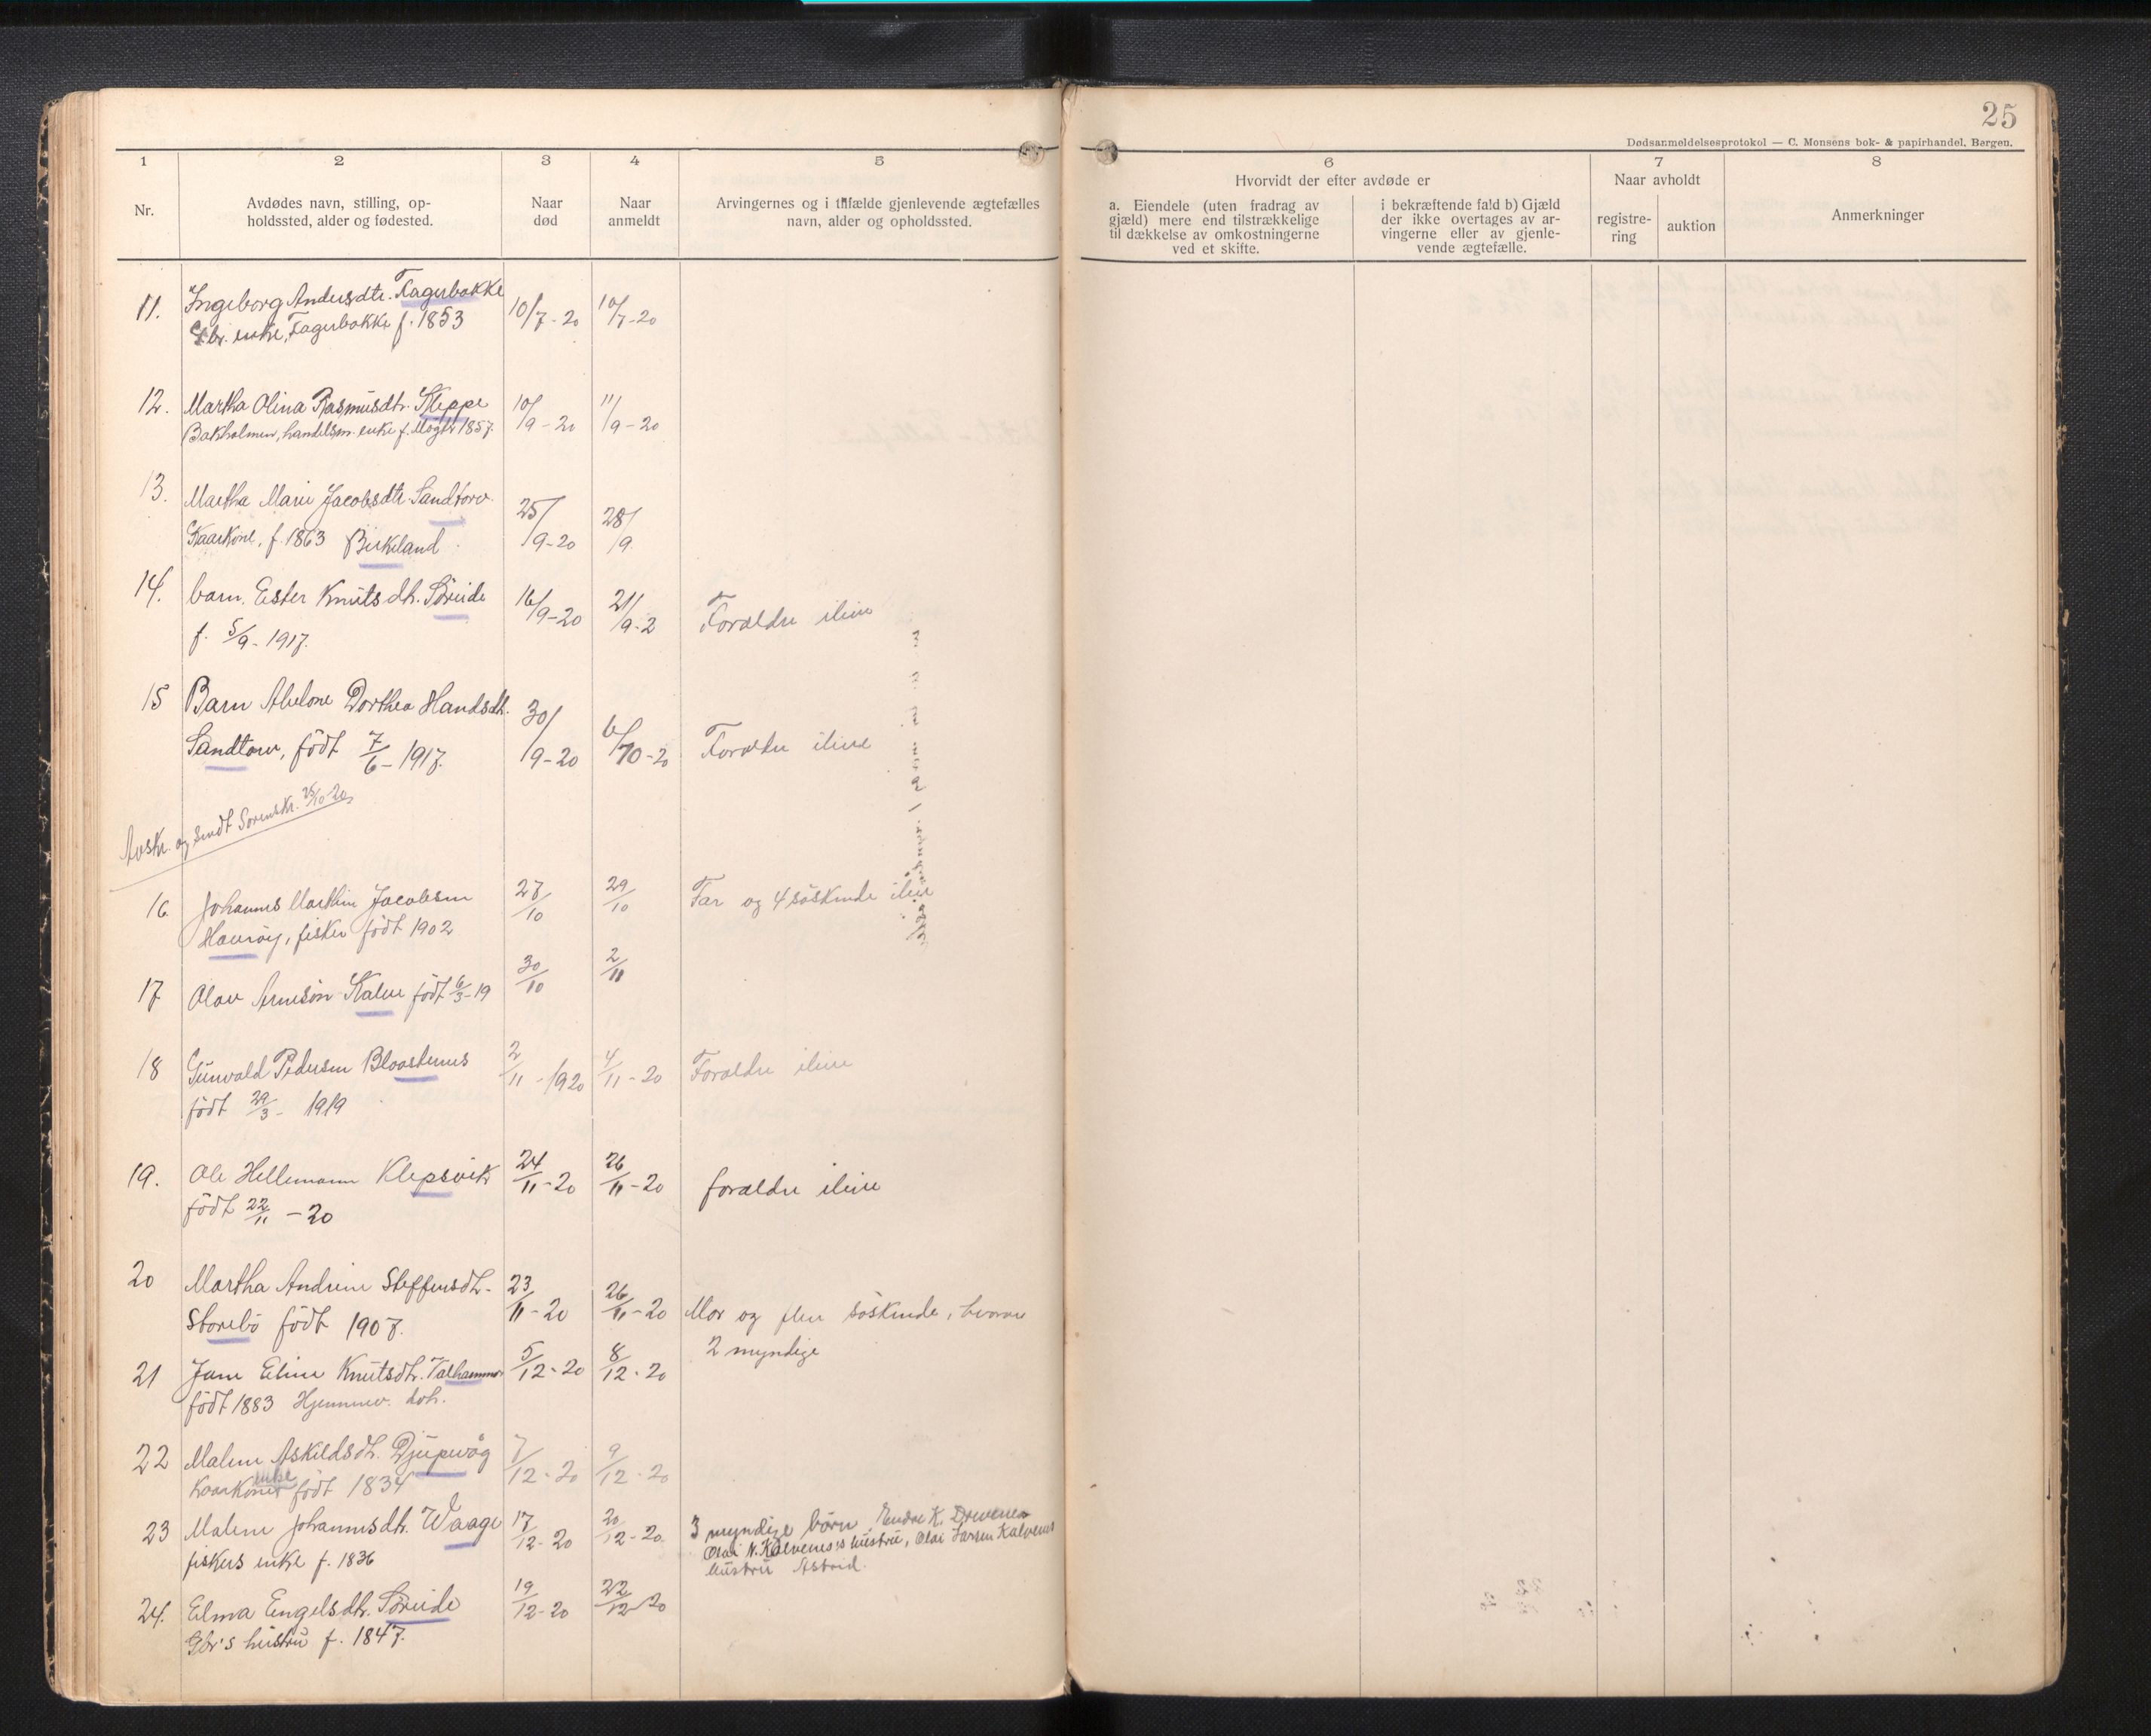 25
Dødsanmeldelsesprotokol — C. Monsens bok- & papirhandel, Bergen.
1 2 3 4 5 6 7 8
Nr.
Avdødes navn, stilling, op-
holdssted, alder og fødested.
Naar
død
Naar
anmeldt
Arvingernes og i tilfælde gjenlevende ægtefælles
navn, alder og opholdssted.
Hvorvidt der efter avdøde er
a. Eiendele (uten fradrag av
gjæld) mere end tilstrækkelige
til dækkelse av omkostningerne
ved et skifte.
i bekræftende fald b) Gjæld
der ikke overtages av ar-
vingerne eller av gjenle-
vende ægtefælle.
Naar avholdt
registre-
ring
auktion
Anmerkninger
11. Ingeborg Andersdtr. Fagerbakke 10/7-20 10/7-20
Gbr. enke, Fagerbakke f. 1853
12. Martha Olina Rasmusdtr. Kleppe 10/9-20 11/9-20
Bakholmen, handelsm. enke f. Møgster 1857.
13. Martha Marie Jacobsdtr. Sandtorv. 25/9-20 28/9.
Kaarkone, f. 1863 Birkeland
14. barn. Ester Knutsdtr. Søreide 16/9-20 21/9-2 Forældre ilive
f. 5/9-1917.
15 Barn Abelone Dorthea Handsdtr. 30/9-20 6/10-20 Forældre ilive
Sandtorv, født 7/6-1917.
Avskr. og sendt Sorenskr. 25/10-20
16. Johannes Marthin Jacobsen 27/10 29/10 Far og 4 søskende ilive
Haurøy, fisker født 1902
17 Olav Arnesøn Kalve født 6/3-19 30/10 2/11
18 Gunvald Pedersen Blaastenes 2/11-1920 4/11-20 Forældre ilive
født 29/3-1919
19. Ole Hellemann Klepsvik 24/11-20 26/11-20 forældre ilive
født 22/11-20
20 Martha Andrine Steffensdtr. 23/11-20 26/11-20 Mor og flere søskende, hvorav
Storebø født 1907. 2 myndige
21 Jane Eline Knutsdtr. Valhammer 5/12-20 8/12-20
født 1883 Hjemmev. dtr.
22 Malene Askildsdtr. Djupevåg 7/12-20 9/12-20
Kaarkones enke født 1834
23 Malene Johannesdtr. Waage 17/12-20 20/12-20 3 myndige børn, Endre K. Drevenes
fiskers enke f. 1836 Olai N. Kalvenes's hustru, Olai Larsen Kalvenes
hustru Astrid.
24. Elma Engelsdtr. Søreide 19/12-20 22/12-20
Gbr's hustru f. 1847.